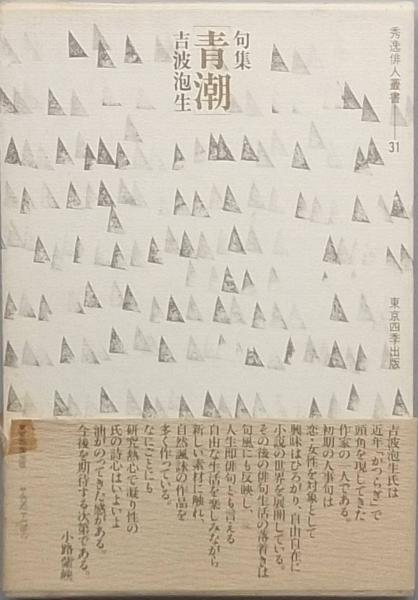 秀逸俳人叢書―31
句集
「青潮」
吉波泡生
東京四季出版
吉波泡生氏は
近年「かつらぎ」で
頭角を現してきた
作家の一人である。
初期の人事句は
恋・女性を対象として
興味はひろがり、自由自在に
小説の世界を展開している。
その後の俳句生活の落着きは
句風にも反映し、
人生即俳句とも言える
自由な生活を楽しみながら
新しい素材に触れ、
自然諷詠の作品を
多く作っている。
なにごとにも
研究熱心で凝り性の
氏の詩心はいよいよ
油がのってきた感がある。
今後を期待する次第である。
小路紫峡